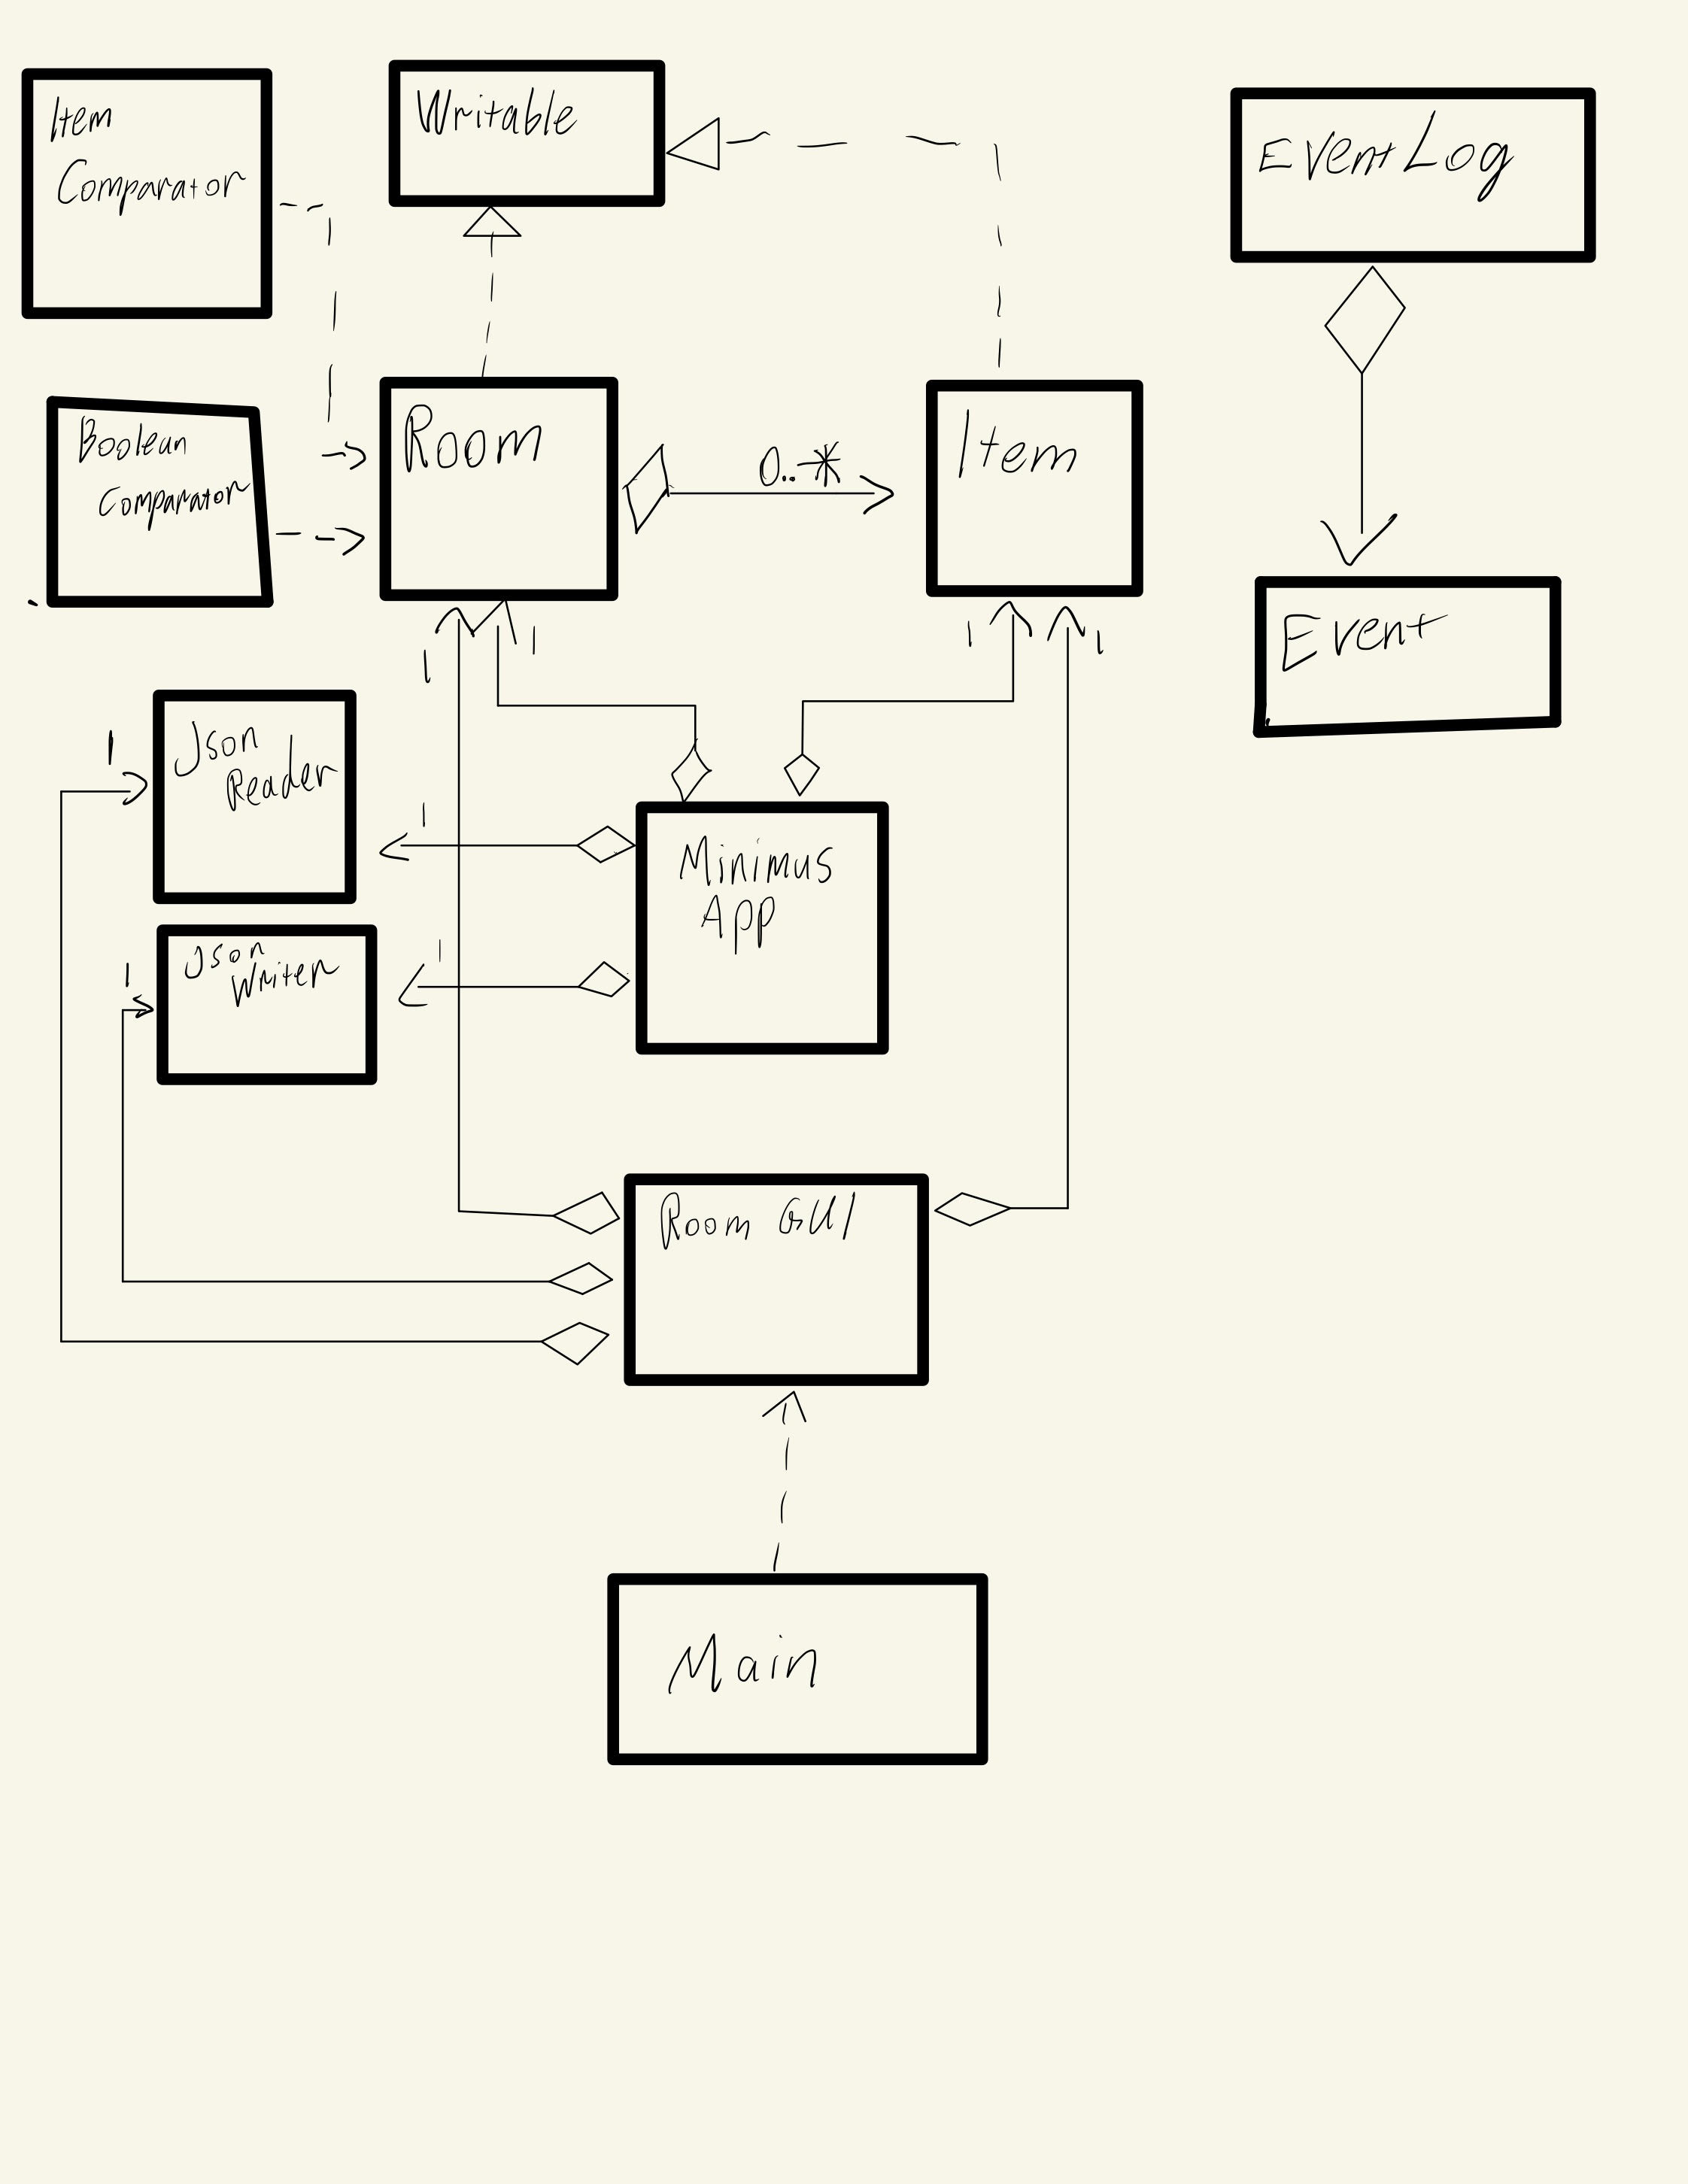 Item
Comparator
Writable
EventLog
Boolean
Comparator
Room
0..*
Item
Event
1
1
1
1
Json
Reader
1
1
Minimus
App
Json
Writer
1
1
Room GUI
Main